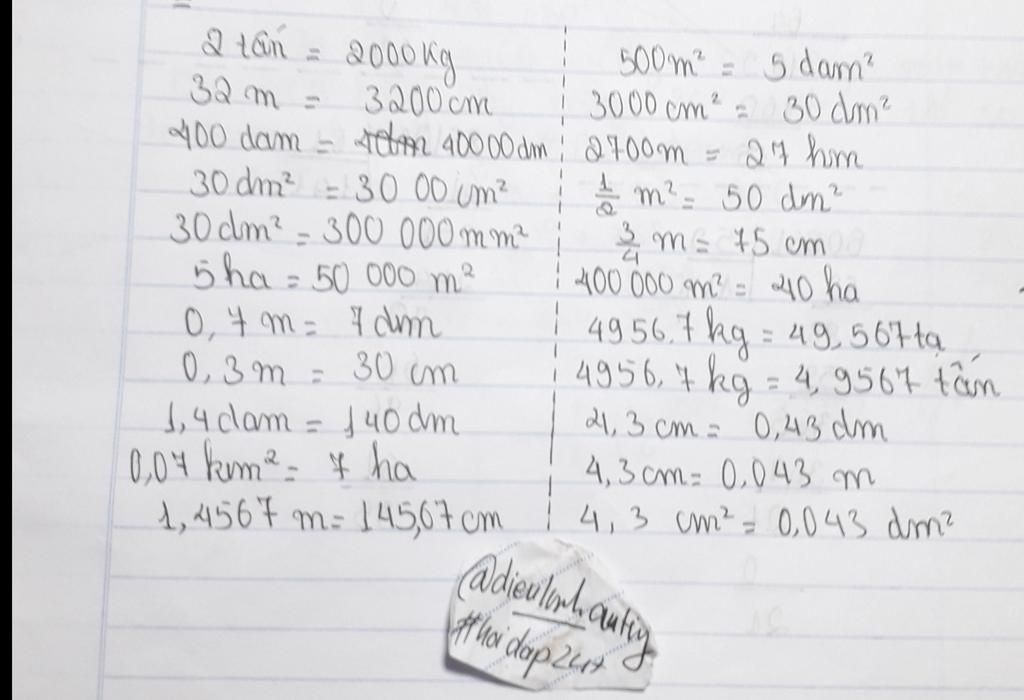 2 tấn = 2000kg
32 m = 3200 cm
400 dam = 40000 dm
30 dm² = 30 00 cm²
30 dm² = 300 000 mm²
5 ha = 50 000 m²
0,7 m = 7 dm
0,3 m = 30 cm
1,4 dam = 140 dm
0,07 km² = 7 ha
1,4567 m = 145,67 cm
500 m² = 5 dam²
3000 cm² = 30 dm²
2700 m = 27 hm
1/2 m² = 50 dm²
3/4 m = 75 cm
400 000 m² = 40 ha
4956,7 kg = 49,567 tạ
4956,7 kg = 4,9567 tấn
4,3 cm = 0,43 dm
4,3 cm = 0,043 m
4,3 cm² = 0,043 dm²
#hoidap247